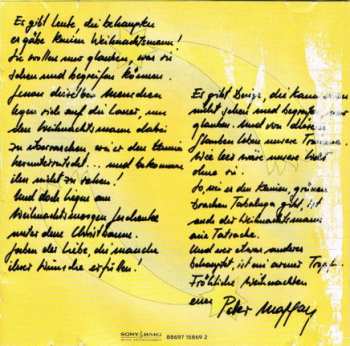 Es gibt Leute, die behaupten
es gäbe keinen Weihnachtsmann!
Sie wollen nur glauben, was sie
sehen und begreifen können.
Genau dieselben Menschen
legen sich auf die Lauer, um
den Weihnachtsmann dabei
zu überraschen, wie er den Kamin
herunterrutscht... und bekommen
ihn nicht zu sehen!
Und doch liegen am
Weihnachtsmorgen Geschenke
unter dem Christbaum.
Gaben der Liebe, die manche
ihrer Wünsche erfüllen!
Es gibt Dinge, die kann man
nicht sehen und begreifen, nur
glauben. Und von diesem
Glauben leben unsere Träume.
Wie leer wäre unsere Welt
ohne sie.
So, wie es den kleinen, grünen
Drachen Tabaluga gibt, ist
auch der Weihnachtsmann
eine Tatsache.
Und wer etwas anderes
behauptet, ist ein armer Tropf.
Fröhliche Weihnachten
euer Peter Maffay
SONY BMG
88697 15869 2